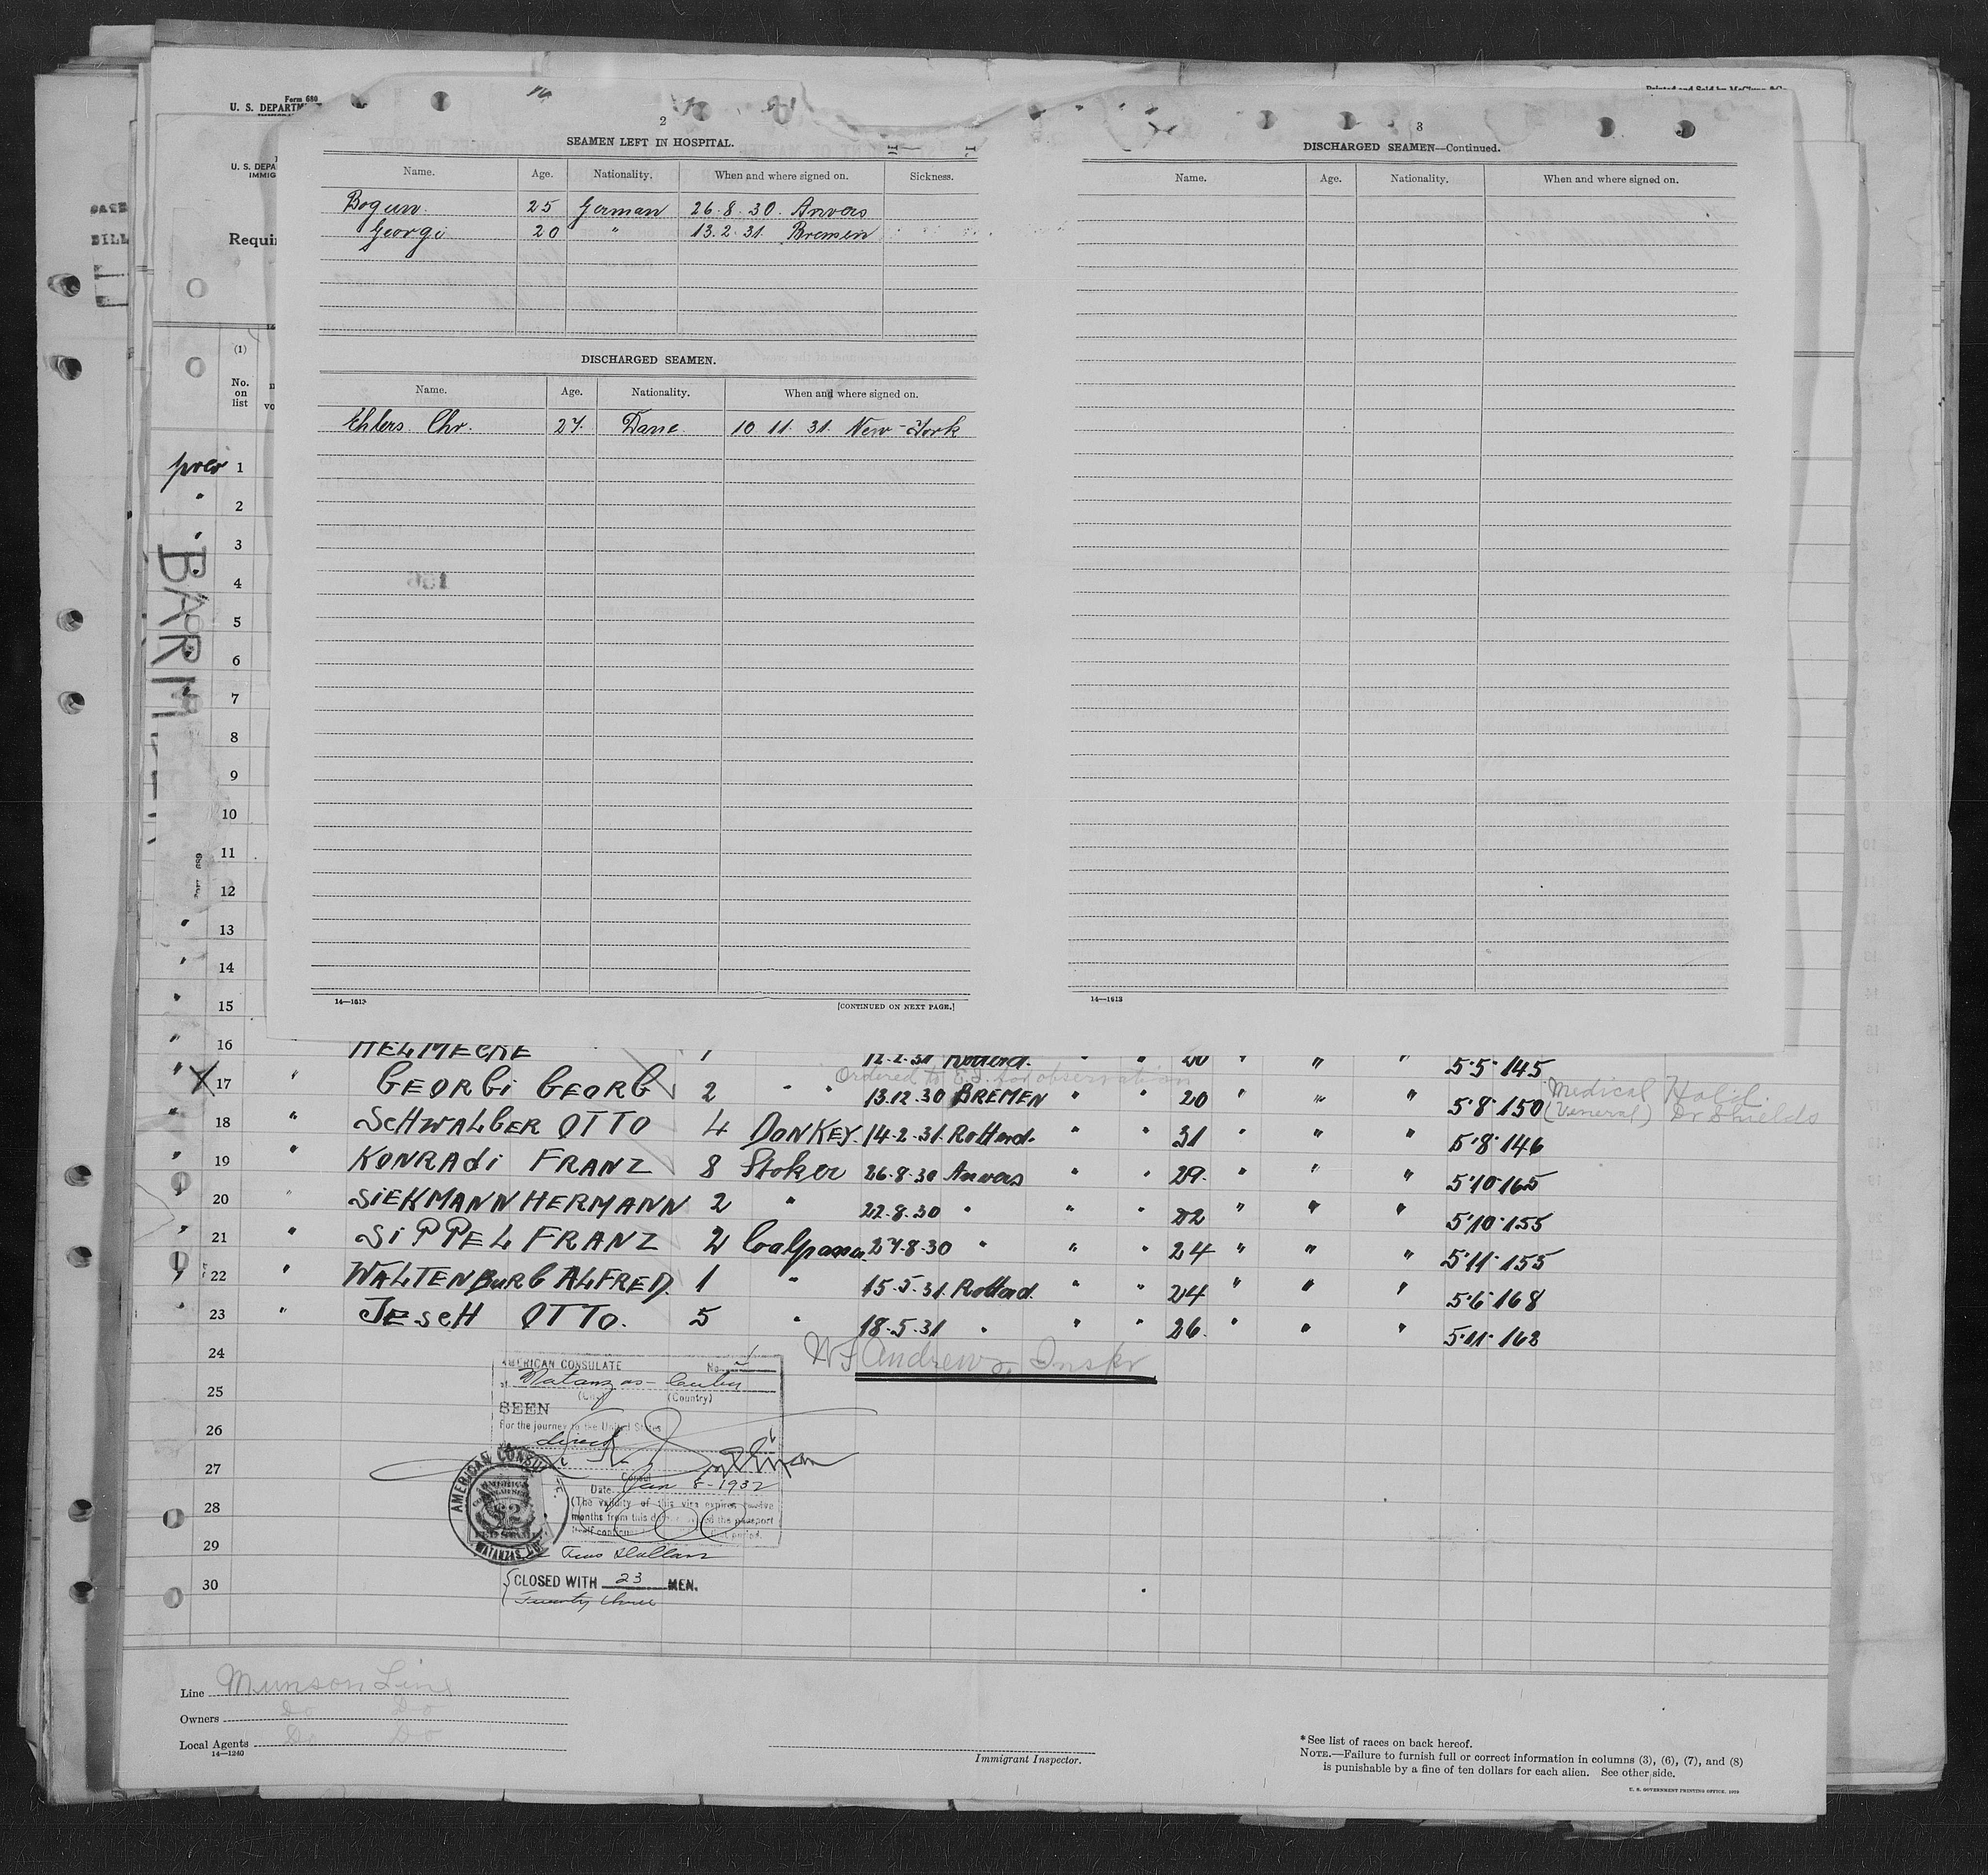 Form 680
U. S. DEPARTM
U. S. DEPA
IMMIG
Requi
(1)
No.
on
list
2
SEAMEN LEFT IN HOSPITAL.
Name. Age. Nationality. When and where signed on. Sickness.
Bogun. 25 German 26.8.30. Anvers
Georgi 20 " 13.2.31. Bremen
DISCHARGED SEAMEN.
Name. Age. Nationality. When and where signed on.
Ehlers Chr. 27. Dane. 10 11. 31. New-York
14—1613
[CONTINUED ON NEXT PAGE.]
3
DISCHARGED SEAMEN—Continued.
Name. Age. Nationality. When and where signed on.
14—1613
1
" 2
" 3
BARM
4
5
6
7
8
9
10
11
12
" 13
" 14
" 15
" 16 HELMECKE 1 12.2.31 Rotterd. " " 20 " " " 5'5" 145
Ordered to E.I. for observation
" X 17 " GEORGi GEORG 2 " " 13.12.30 BREMEN " " 20 " " " 5'8" 150 Medical
(Veneral) Dr Shields
" 18 " SCHWALBER OTTO 4 DONKEY. 14.2.31. Rotterd. " " 31 " " " 5'8" 146
" 19 " KONRADi FRANZ 8 Stoker 26.8.30 Anvers " " 29. " " " 5'10" 165
20 " SiEKMANN HERMANN 2 " 22.8.30 " " " 22 " " " 5'10" 155
" 21 " SiPPEL FRANZ 2 27.8.30 " " " 24 " " " 5'11" 155
" 22 " WALTENBURG ALFRED. 1 " 15.5.31. Rotterd. " " 24 " " " 5'6" 168
" 23 " JESCH OTTO. 5 " 18.5.31 " " " 26. " " " 5'11" 168
24 W F Andrews, Inspr
25
26
27
28
29
30
AMERICAN CONSULATE No.
at Matanzas - Cuba
(City) (Country)
SEEN
For the journey to the United States
direct
Consul
Date. Jan 8 - 1932
(The validity of this visa expires twelve
months from this date
AMERICAN CONSU
MATANZAS, CU
$2
Two Dollars
CLOSED WITH 23 MEN.
Twenty three
Line Munson Line
Owners Do Do
Local Agents Do Do
14—1240
Immigrant Inspector.
* See list of races on back hereof.
NOTE.—Failure to furnish full or correct information in columns (3), (6), (7), and (8)
is punishable by a fine of ten dollars for each alien. See other side.
U. S. GOVERNMENT PRINTING OFFICE.